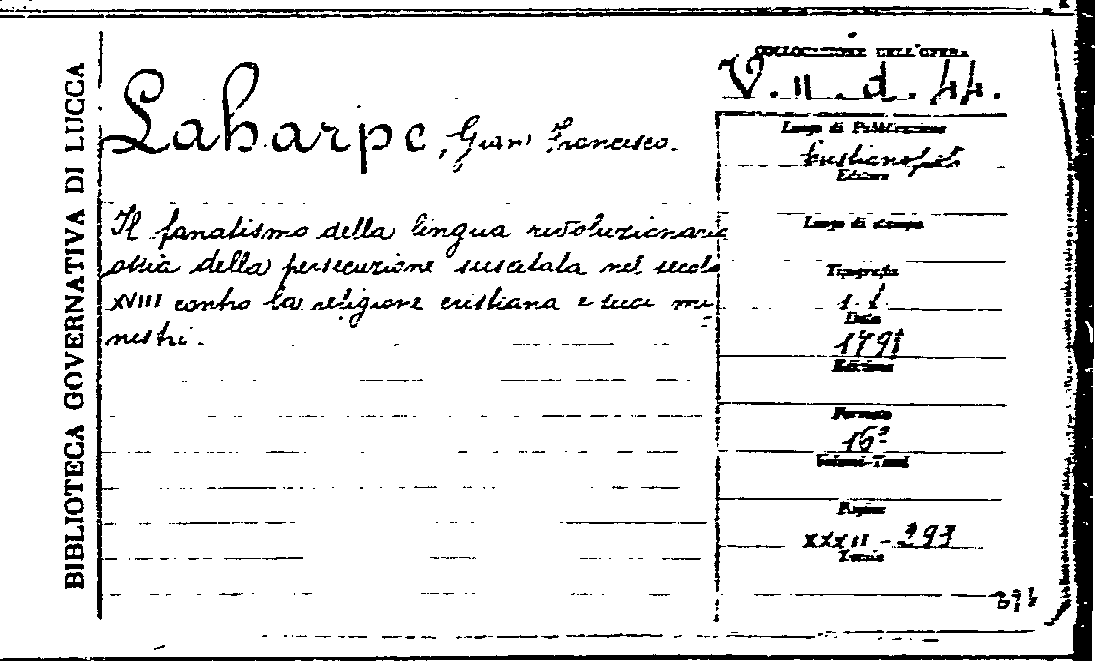 BIBLIOTECA GOVERNATIVA DI LUCCA
COLLOCAZIONE DELL'OPERA
V. II. d. 44.
Laharpe, Gian Francesco.
Luogo di Pubblicazione
Editore
Il fanatismo della lingua rivoluzionaria
Luogo di stampa
ossia della persecuzione suscitata nel secolo
Tipografia
XVIII contro la religione cristiana e suoi mi-
Data
nistri.
179
Edizione
Formato
16º
Volumi-Tomi
Pagine
XXXII - 293
Tavole